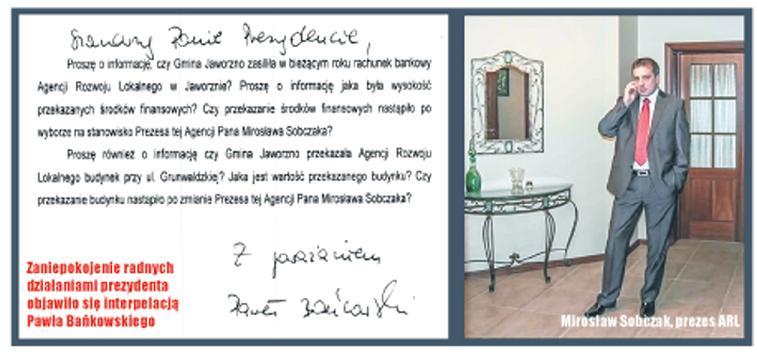 Szanowny Panie Prezydencie,
Proszę o informację, czy Gmina Jaworzno zasiliła w bieżącym roku rachunek bankowy
Agencji Rozwoju Lokalnego w Jaworznie? Proszę o informację jaka była wysokość
przekazanych środków finansowych? Czy przekazanie środków finansowych nastąpiło po
wyborze na stanowisko Prezesa tej Agencji Pana Mirosława Sobczaka?
Proszę również o informację czy Gmina Jaworzno przekazała Agencji Rozwoju
Lokalnego budynek przy ul. Grunwaldzkiej? Jaka jest wartość przekazanego budynku? Czy
przekazanie budynku nastąpiło po zmianie Prezesa tej Agencji Pana Mirosława Sobczaka?
Z poważaniem
Paweł Bańkowski
Zaniepokojenie radnych
działaniami prezydenta
objawiło się interpelacją
Pawła Bańkowskiego
Mirosław Sobczak, prezes ARL